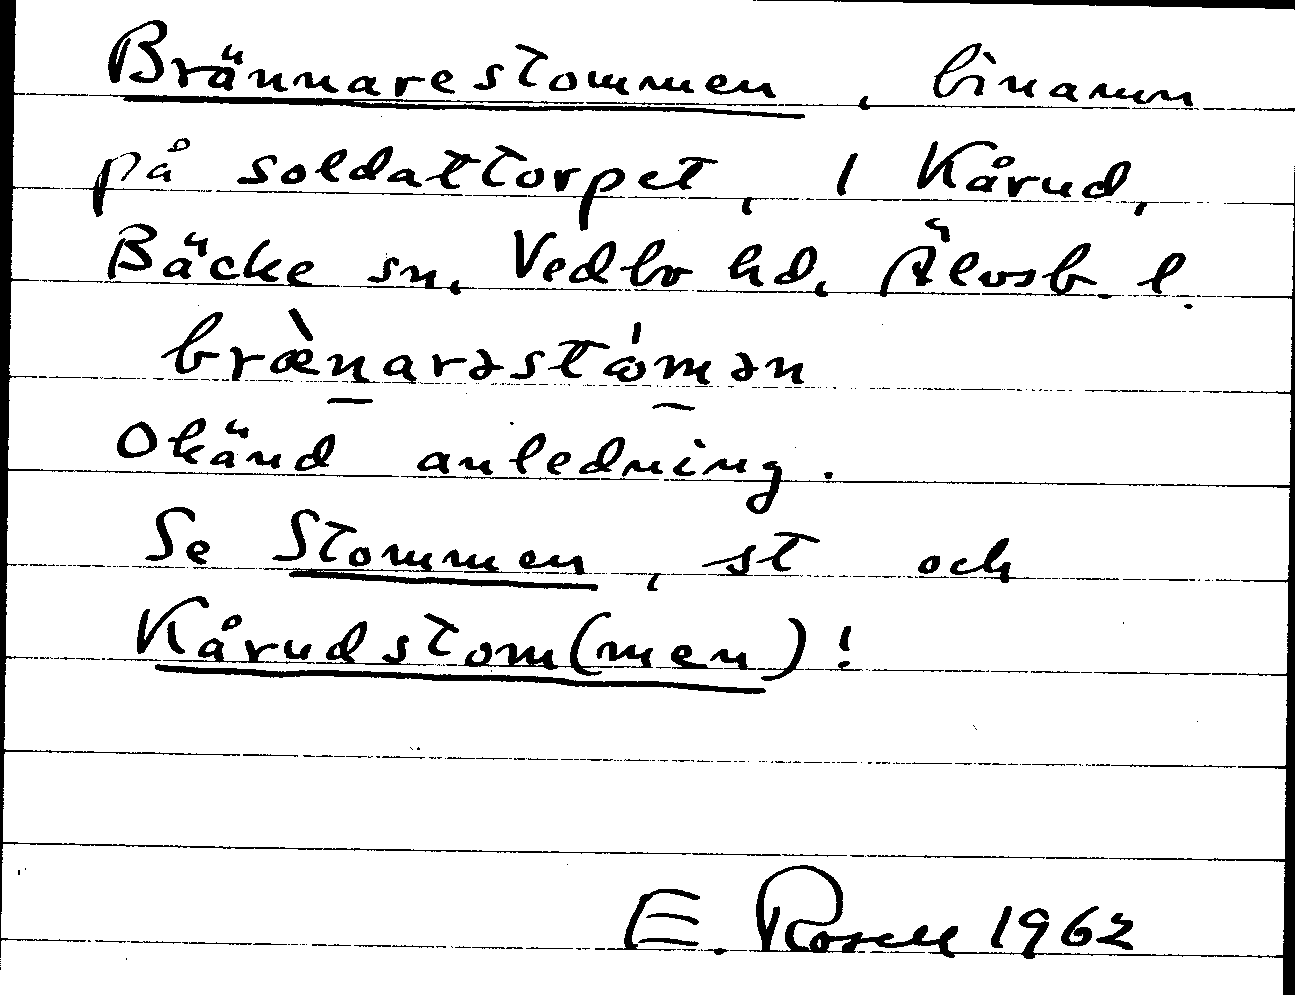 Brännarestommen, binamn
på soldattorpet, 1 Kårud,
Bäcke sn, Vedbo hd, Älvsb. l.
bræ̀n̲arəstω̍m̲ən
Okänd anledning.
Se Stommen, st och
Kårudstom(men)!
E. Rosell 1962